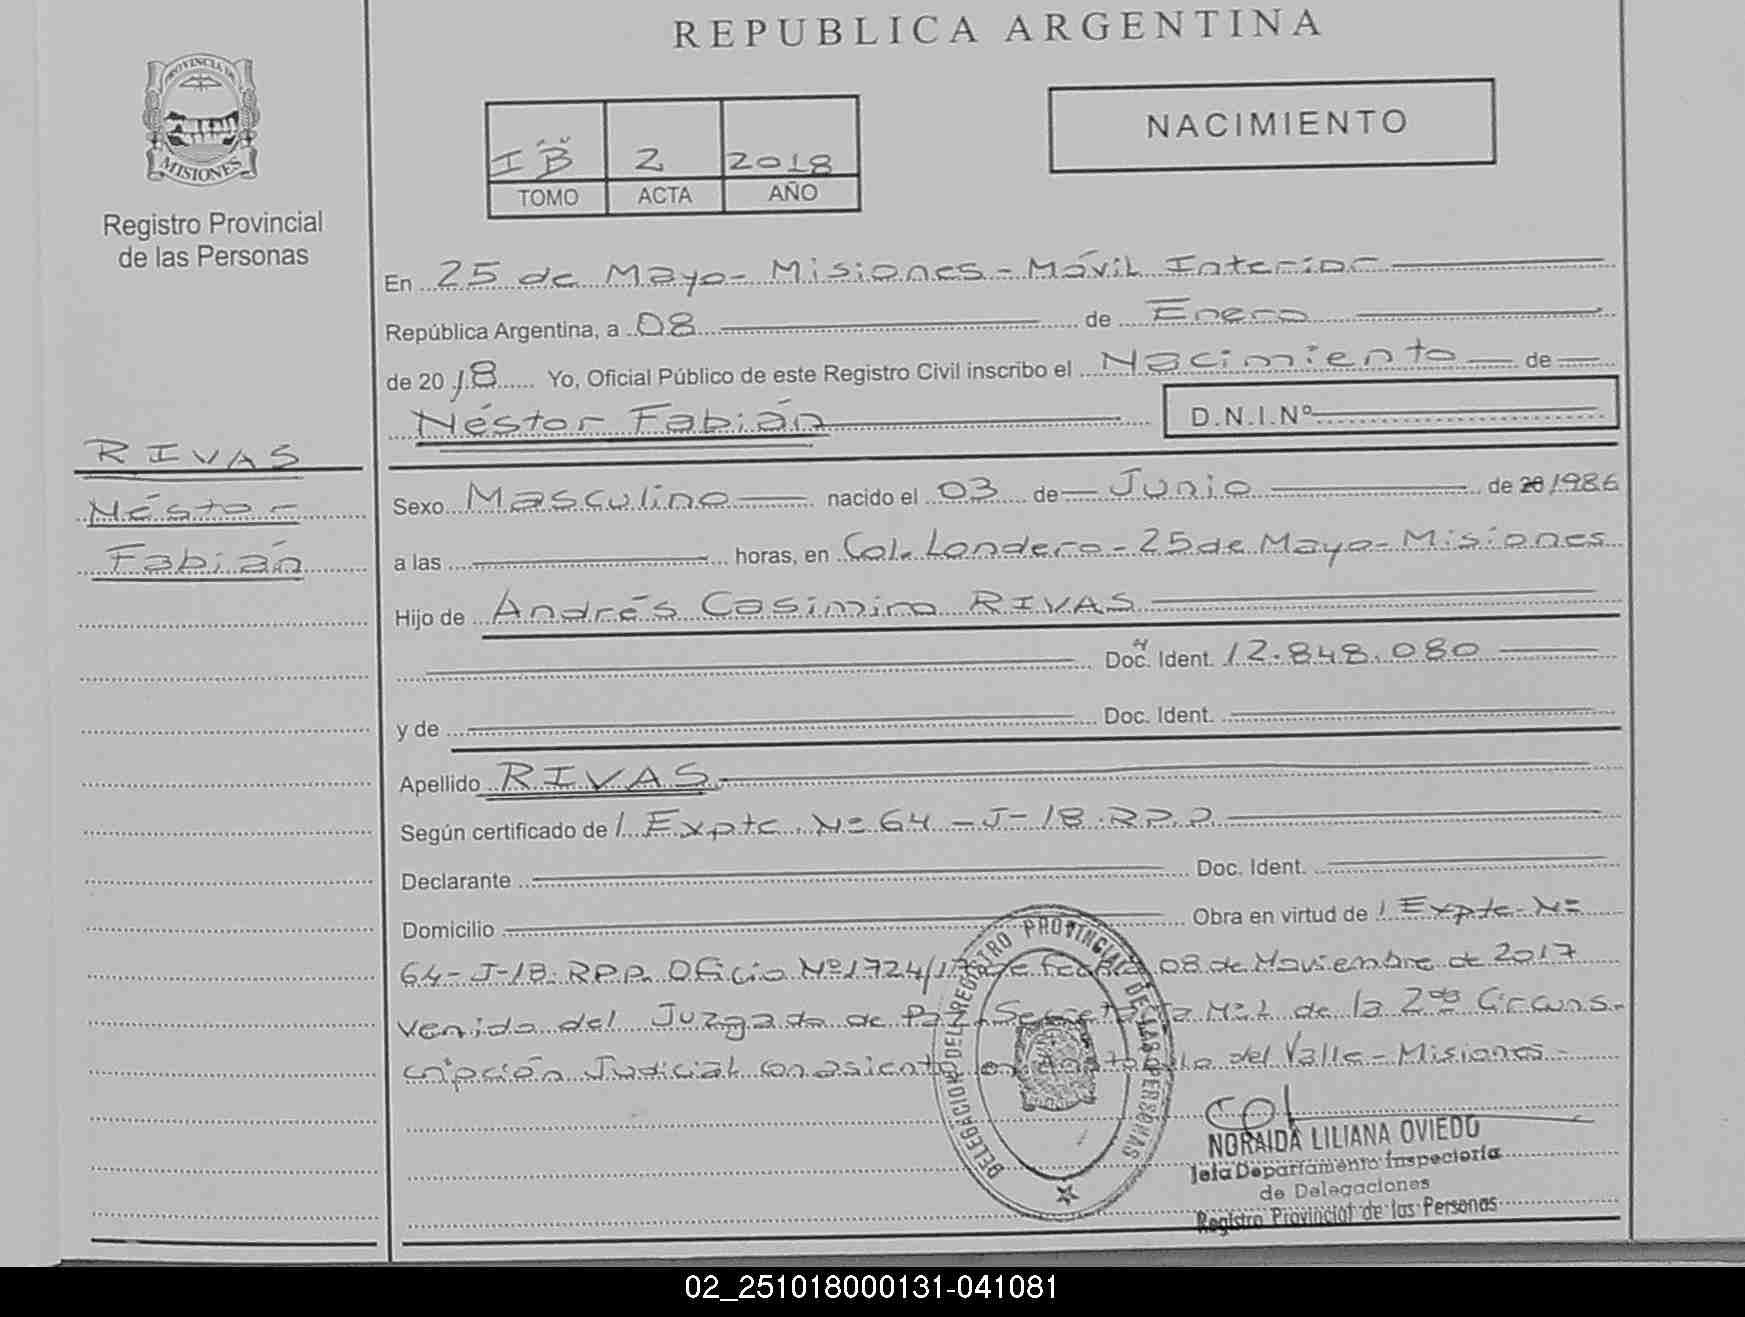 REPUBLICA ARGENTINA
PROVINCIA DE
MISIONES
Registro Provincial
de las Personas
I "B" 2 2018
TOMO ACTA AÑO
NACIMIENTO
En 25 de Mayo - Misiones - Móvil Interior
República Argentina, a 08 de Enero
de 2018 Yo, Oficial Público de este Registro Civil inscribo el Nacimiento de
Néstor Fabián D.N.I.Nº
RIVAS
Néstor
Fabián
Sexo Masculino nacido el 03 de Junio de 20 1986
a las horas, en Col. Londero - 25 de Mayo - Misiones
Hijo de Andrés Casimiro RIVAS
Doc. Ident. 12.848.080
y de Doc. Ident.
Apellido RIVAS
Según certificado de / Expte Nº 64 - J - 18. R.P.P
Declarante Doc. Ident.
Domicilio Obra en virtud de / Expte Nº
64 - J-18. R.P.P. Oficio Nº 1724/17 de fecha 08 de Noviembre de 2017
venido del Juzgado de Paz Secretaria Nº 2 de la 2da Circuns-
cripción Judicial con asiento en del Valle - Misiones -
DELEGACION DEL REGISTRO PROVINCIAL DE LAS PERSONAS
NORAIDA LILIANA OVIEDO
Jefa Departamento Inspectoría
de Delegaciones
Registro Provincial de las Personas
02_251018000131-041081